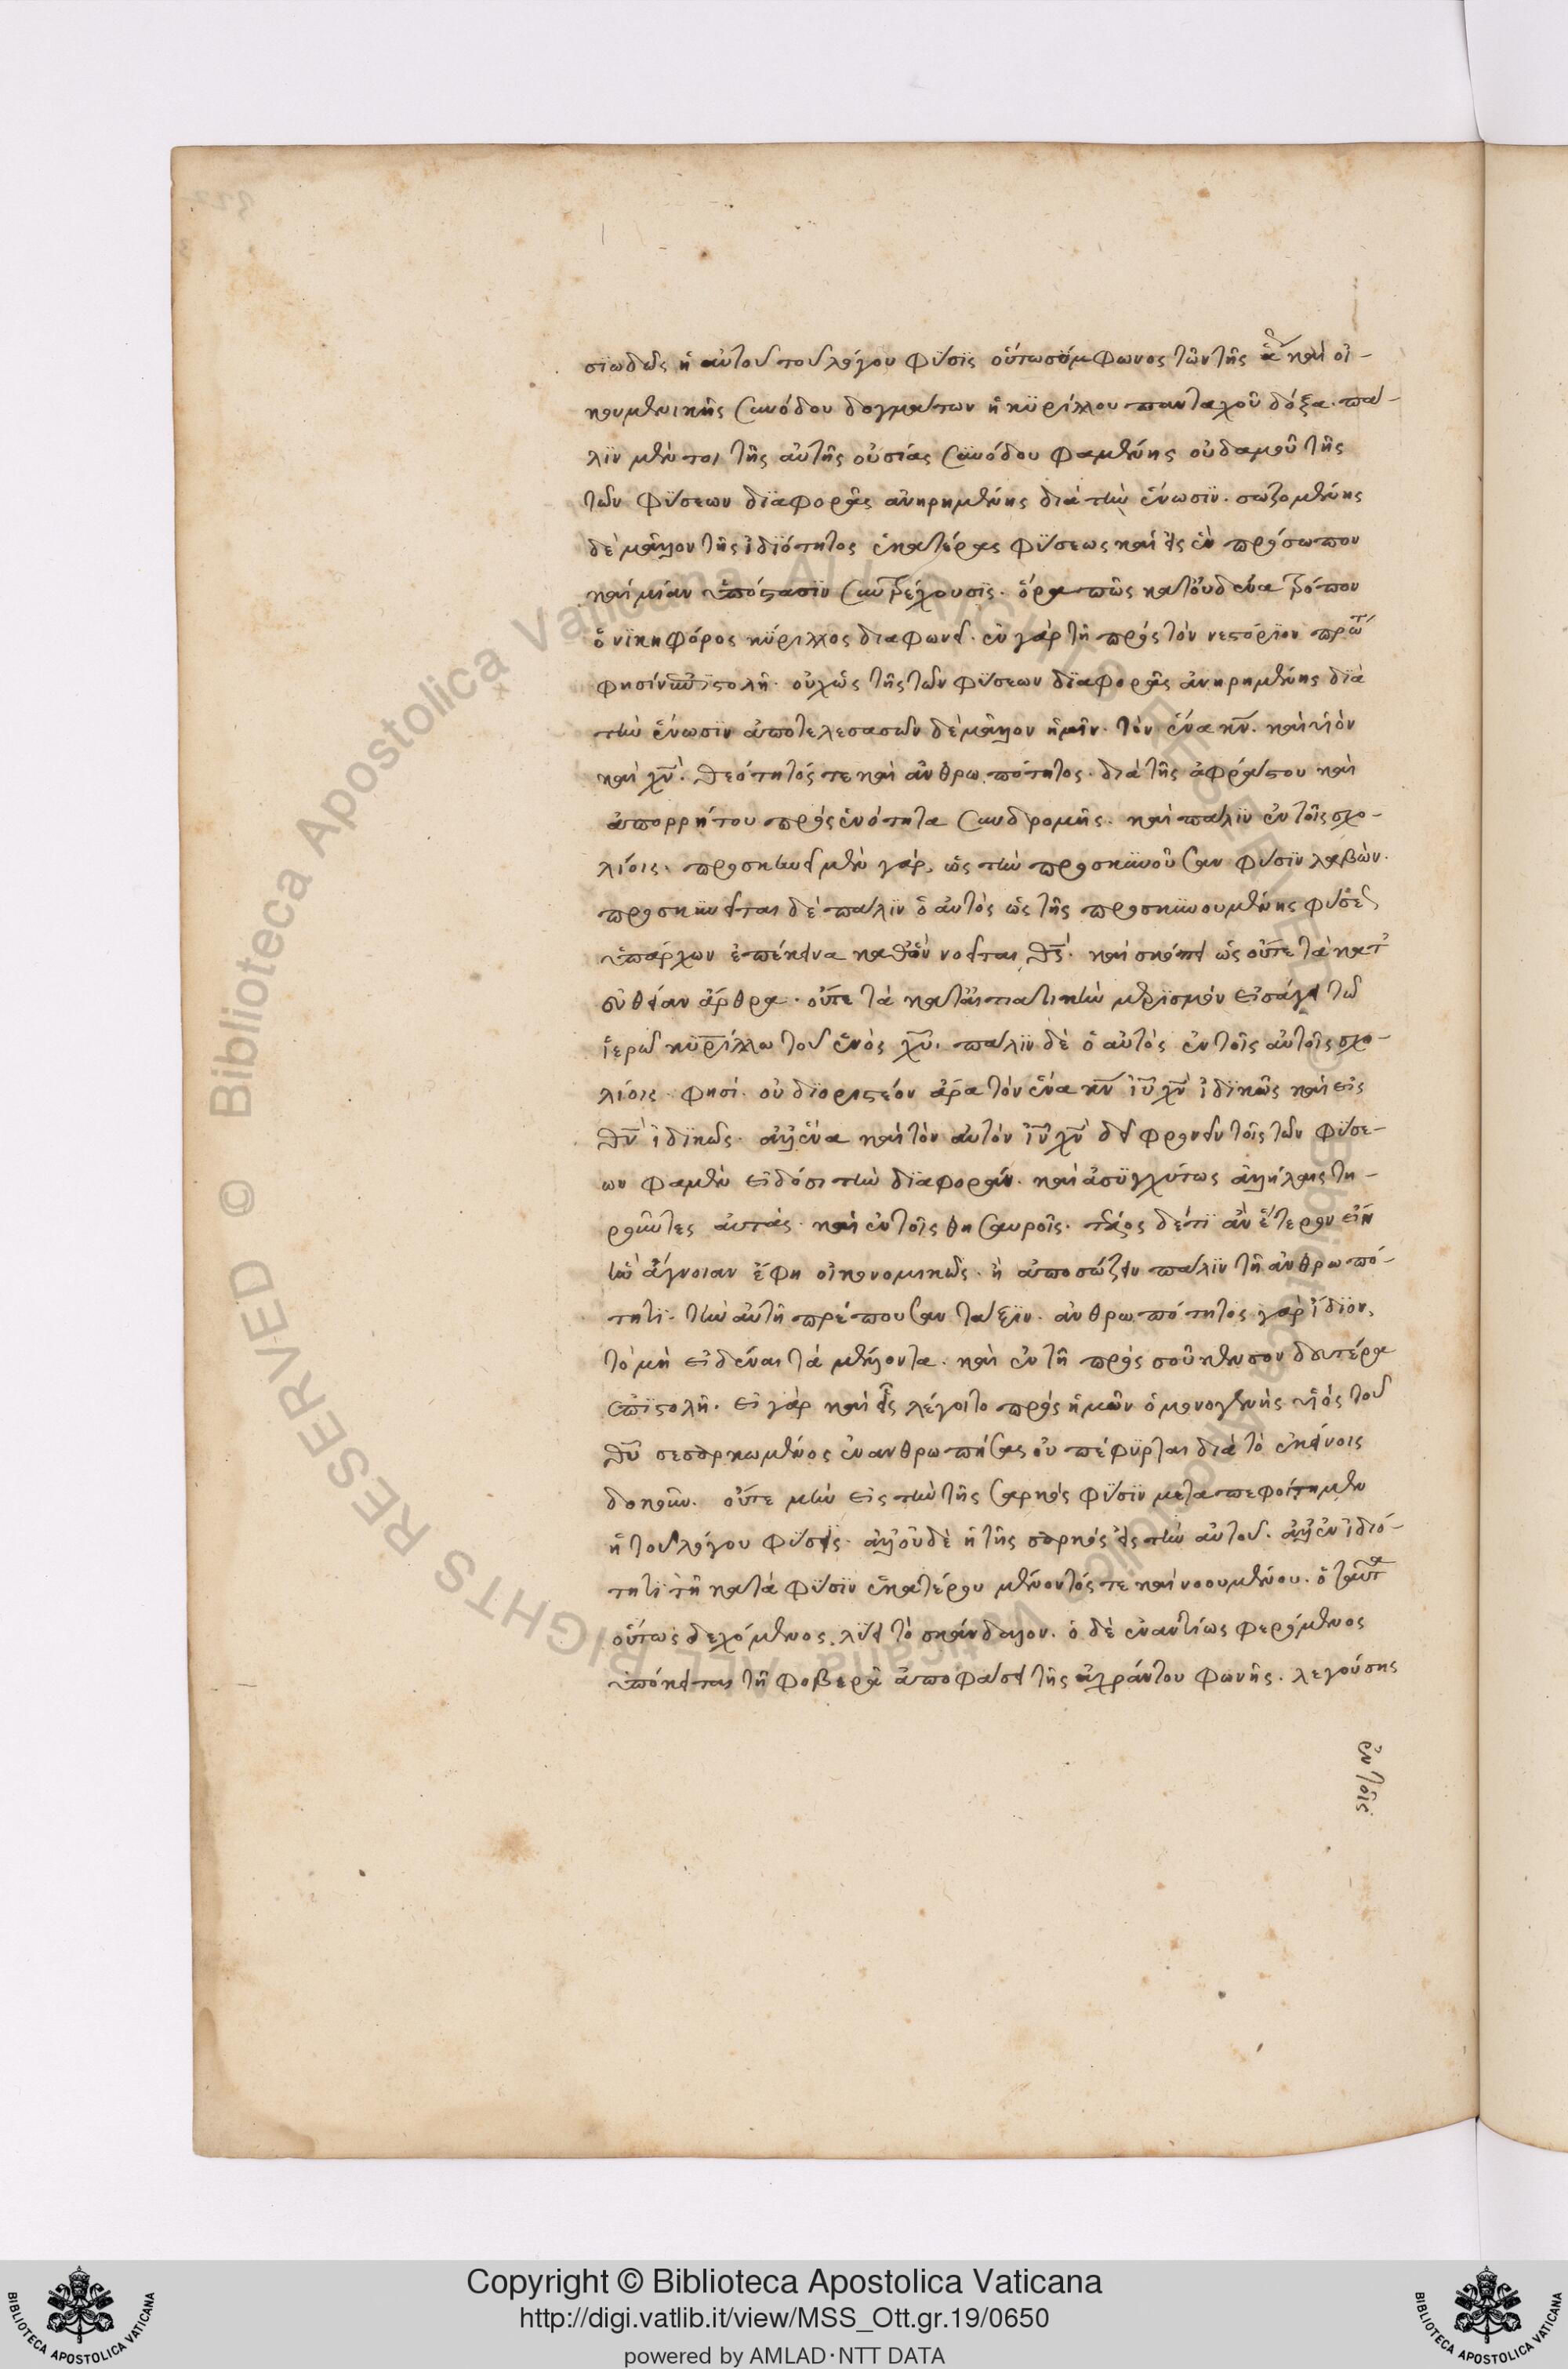 σϊωδῶς ἡ αὐτοῦ τοῦ λόγου φύσϊς οὕτω σύμφωνος τῶν τῆς ἁ καὶ οἰ-
κουμενικῆς συνόδου δογμάτων ἡ κϋρίλλου πανταχοῦ δόξα. πά-
λϊν μέν τοι τῆς αὐτῆς οὐσίας συνόδου φαμένης οὐδαμοῦ τῆς
τῶν φϋσεων δϊαφορᾶς ἀνηρημένης διὰ τὴν ἕνωσϊν. σωζομένης
δὲ μᾶλλον τῆς ἰδϊότητος ἑκατέρας φϋσεως καὶ εἰς ἓν πρόσωπον
καὶ μίαν ὑπόστασϊν συντρεχούσϊς. ὅρα πῶς κατ' οὐδένα τρόπον
ὁ νϊκηφόρος κϋριλλος διαφωνεῖ. ἐν γὰρ τῆ πρὸς τὸν νεστόρϊον πρώτ
φησὶν ἐπϊστολῆ. οὐχ ὡς τῆς τῶν φϋσεων δϊαφορᾶς ἀνηρημένης δϊὰ
τὴν ἕνωσϊν ἀποτελεσασῶν δὲ μᾶλλον ἡμῖν. τὸν ἕνα κν. καὶ υἱὸν
καὶ χν. θεότητός τε καὶ ἀνθρωπότητος. διὰ τῆς ἀφράστου καὶ
ἀπορρήτου πρὸς ἑνότητα συνδρομῆς. καὶ πάλϊν ἐν τοῖς σχο-
λίοις. προσκυνεῖ μὲν γὰρ, ὡς τὴν προσκϋνοῦσαν φύσϊν λαβών.
προσκϋνεῖται δὲ πάλϊν ὁ αὐτὸς ὡς τῆς προσκϋνουμένης φύσε
ὑπάρχων ἐπέκεινα καθ' ὃν νοεῖται θς. καὶ σκόπει ὡς οὔτε τὰ κατ'
εὐθεῖαν ἄρθρα. οὔτε τὰ κατ' αἰτιατικὴν μερϊσμὸν εἰσάγει τῶ
ἱερῶ κϋρίλλω τοῦ ἑνὸς χυ. πάλϊν δὲ ὁ αὐτὸς ἐν τοῖς αὐτοῖς σχο-
λίοις. φησί. οὐ δϊοριστέον ἄρα τὸν ἕνα κν ιν χν ἰδϊκῶς καὶ εἰς
θν ἰδϊκῶς. ἀλλ' ἕνα καὶ τὸν αὐτὸν ιν χν δεῖ φρονεῖν τοῖς τῶν φύσε-
ων φαμὲν εἰδόσι τὴν δϊαφοράν. καὶ ἀσϋγχύτως ἀλλήλαις τη-
ροῦντες αὐτάς. καὶ ἐν τοῖς θησαυροῖς. τέλος δέ τϊ ἂν ἕτερον εἴη
τὴν ἄγνοιαν ἔφη οἰκονομικῶς. ἢ ἀποσώζειν πάλϊν τῆ ἀνθρωπό-
τητϊ. τὴν αὐτῆ πρέπουσαν τάξϊν. ἀνθρωπότητος γὰρ ἴδϊον,
τὸ μὴ εἰδέναι τὰ μέλλοντα. καὶ ἐν τῆ πρὸς σούκενσον δευτέρα
ἐπϊστολῆ. εἰ γὰρ καὶ εἷς λέγοιτο πρὸς ἡμῶν ὁ μονογενὴς υἱὸς τοῦ
θυ σεσαρκωμένος ἐνανθρωπήσας οὐ πέφϋρται διὰ τὸ ἐκείνοις
δοκοῦν. οὔτε μὴν εἰς τὴν τῆς σαρκὸς φϋσϊν μεταπεφοίτημεν
ἡ τοῦ λόγου φϋσεις. ἀλλ' οὐδὲ ἡ τῆς σαρκὸς εἰς τὴν αὐτοῦ. ἀλλ' ἐν ἰδιό-
τητϊ τῆ κατὰ φύσϊν ἑκατέρου μένοντός τε καὶ νοουμένου. ὁ ταῦτα
οὕτως δεχόμενος. λύει τὸ σκάνδαλον. ὁ δὲ ἐναντίως φερόμενος
ὑπόκειται τῆ φοβερᾶ ἀποφάσει τῆς ἀχράντου φωνῆς. λεγούσης
ἐν τοῖς
Copyright © Biblioteca Apostolica Vaticana
http://digi.vatlib.it/view/MSS_Ott.gr.19/0650
powered by AMLAD·NTT DATA